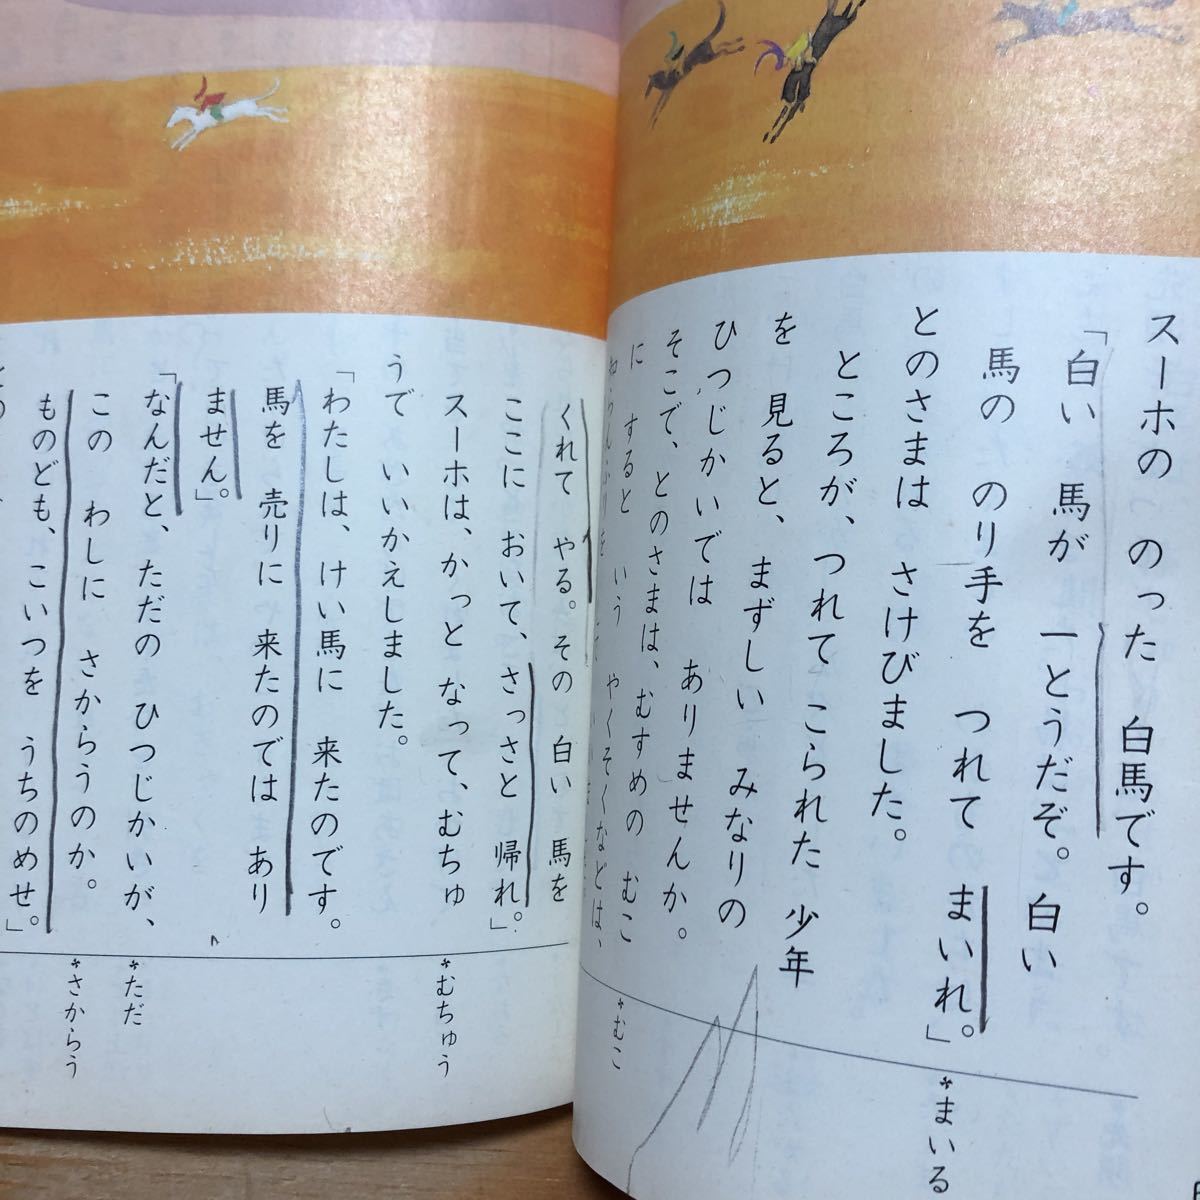 スーホの のった 白馬です。
「白い 馬が 一とうだぞ。白い
馬の のり手を つれて まいれ。」
とのさまは さけびました。
ところが、つれて こられた 少年
を 見ると、まずしい みなりの
ひつじかいでは ありませんか。
そこで、とのさまは、むすめの むこ
に すると いう やくそくなどは、
*まいる
*むこ
くれて やる。その 白い 馬を
ここに おいて、さっさと 帰れ。」
スーホは、かっと なって、むちゅ
うで いいかえしました。
「わたしは、けい馬に 来たのです。
馬を 売りに 来たのでは あり
ません。」
「なんだと、ただの ひつじかいが、
この わしに さからうのか。
ものども、こいつを うちのめせ。」
*むちゅう
*ただ
*さからう